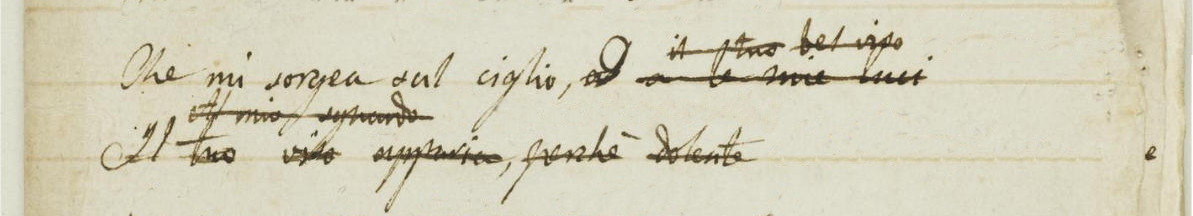 il tuo bel viso
Che mi sorgea sul ciglio, ed a le mie luci
Al mio sguardo
Il tuo viso apparia, perchè dolente
e